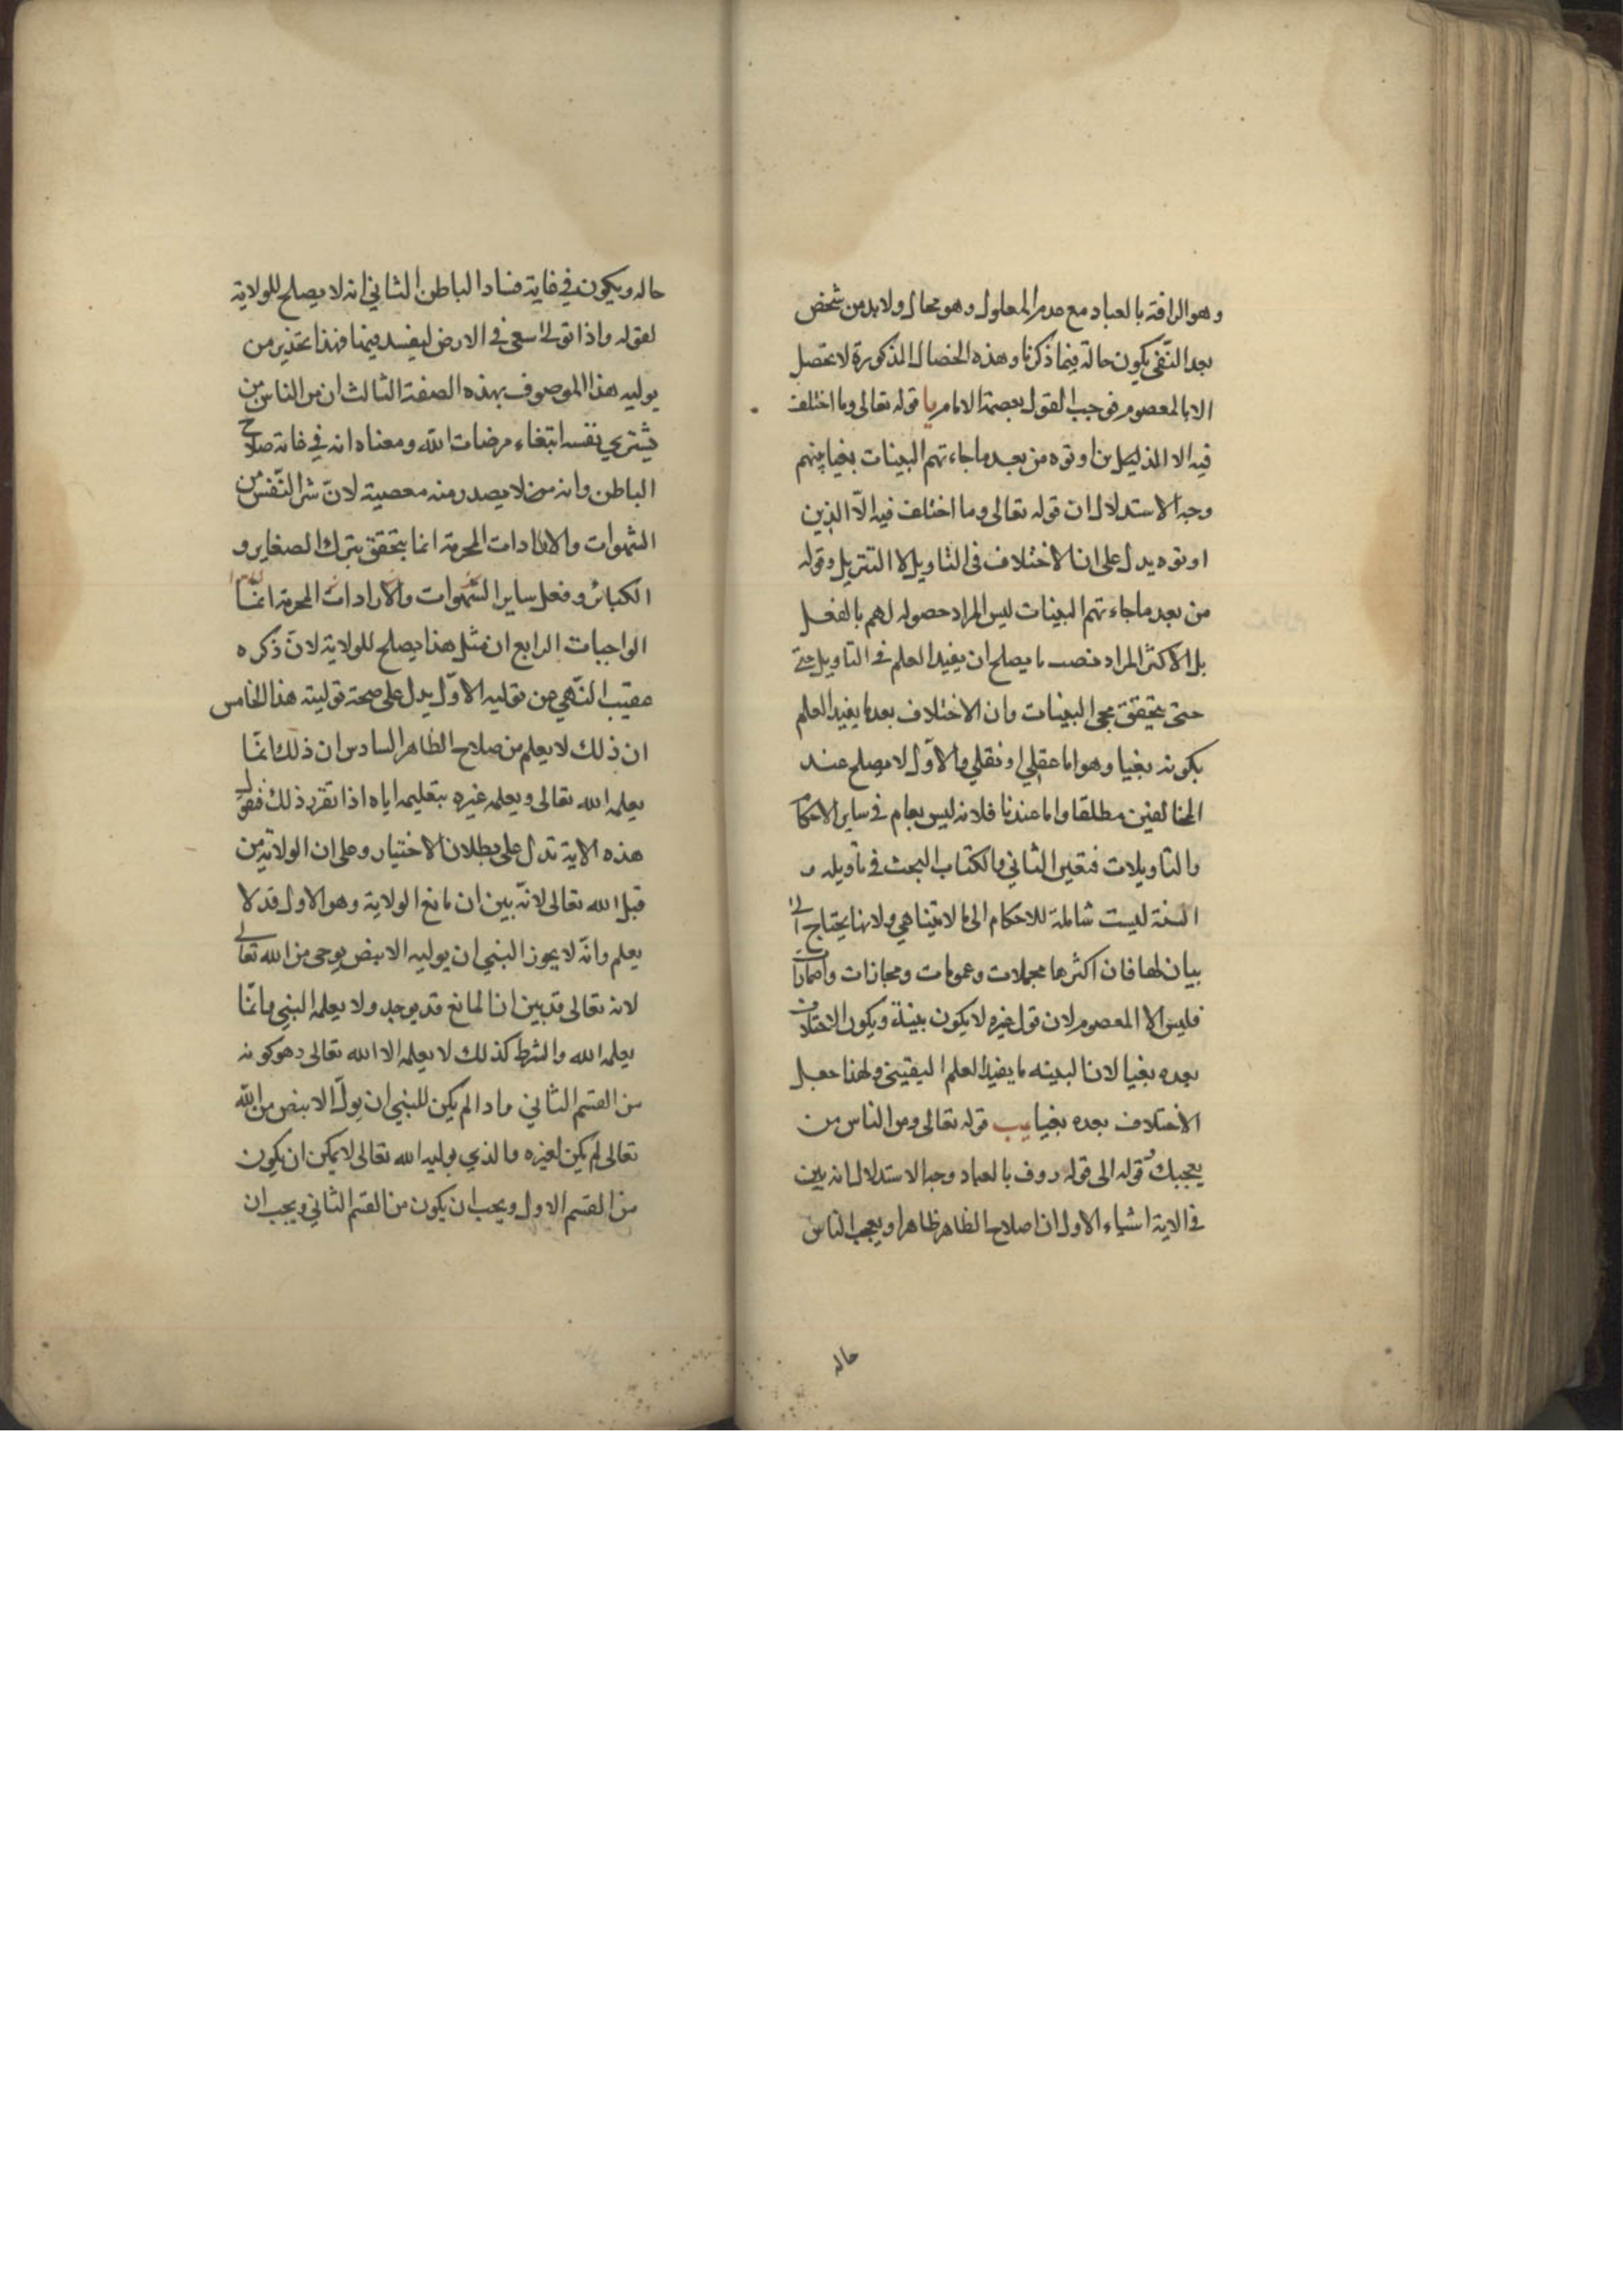 وهو الرافة بالعباد مع عدم المعلول وهو محال ولا بد من شخص
بعد النّفى يكون حالة فيما ذكرنا وهذه الخصال المذكورة لا تحصل
الا بالمعصوم فوجب القول بعصمة الامام يا قوله تعالى وما اختلف
فيه الا الذين اوتوه من بعد ما جاءتهم البينات بغيا بينهم
وجه الاستدلال ان قوله تعالى وما اختلف فيه الّا الذين
اوتوه يدل على ان الاختلاف فى التاويل لا التنزيل وقوله
من بعد ما جاءتهم البينات ليس المراد حصوله لهم بالفعل
بل الاكثر المراد نصب ما يصلح ان يفيد العلم فى التاويل حتى
حتى يتحقق مجى البينات وان الاختلاف بعد ما يفيد العلم
بكونه بغيا وهو اما عقلي او نقلي والاوّل لا يصلح عند
المخالفين مطلقا واما عندنا فلانه ليس بعام فى ساير الاحكام
والتاويلات فتعين الثاني والكتاب البحث فى تاويله و
السنة ليست شاملة للاحكام الى ما لا تيناهي ولانها يحتاج الى
بيان لها فان اكثرها مجملات وعمومات ومجازات واضمارات
فليس الا المعصوم لان قول غيره لا يكون بينة ويكون الاختلاف
بعده بغيا لان البينه ما يفيد العلم اليقينى ولهذا جعل
الاختلاف بعده بغيا يب قوله تعالى ومن الناس من
يعجبك قوله الى قوله روف بالعباد وجه الاستدلال انه بين
فى الاية اشياء الاول ان اصلاح الظاهر ظاهرا ويعجب الناس
حاله
حاله ويكون في غاية فساد الباطن الثاني انه لا يصلح للولاية
لقوله واذا تولى سعى فى الارض ليفسد فيها فهذا تحذير من
يوليه هذا الموصوف بهذه الصفة الثالث ان من الناس من
يشترى نفسه ابتغاء مرضات اللّه ومعناه انه في غاية صلاح
الباطن وانه من لا يصدر منه معصية لانّ شر النّفس من
الشهوات والارادات المحرمة انما يتحقق بترك الصغاير و
الكبائر وفعل ساير الشهوات والارادات المحرمة انمّا
الواجبات الرابع ان مثل هذا يصلح للولاية لانّ ذكره
عقيب النّهي عن توليه الاوّل يدل على صحة توليته هذا الخامس
ان ذلك لا يعلم من صلاح الظاهر السادس ان ذلك انمّا
يعلمه الله تعالى ويعلمه غيره بتعليمه اياه اذا تقرر ذلك فنقول
هذه الاية تدل على بطلان الاختيار وعلى ان الولاية من
قبل الله تعالى لانّه بين ان مانع الولاية وهو الاول قد لا
يعلم وانّه لا يجوز النبي ان يوليه الا بنص يوحى من الله تعالى
لانه تعالى قد بين ان المانع قد يوجد ولا يعلمه النبي وانّما
يعلمه الله والشرط كذلك لا يعلمه الا الله تعالى وهو كونه
من القسم الثاني واذا لم يكن للنبي ان يولّ الا بنص من اللّه
تعالى لم يكن لغيره والذي يوليه الله تعالى لا يمكن ان يكون
من القسم الاول ويجب ان يكون من القسم الثاني ويجب ان